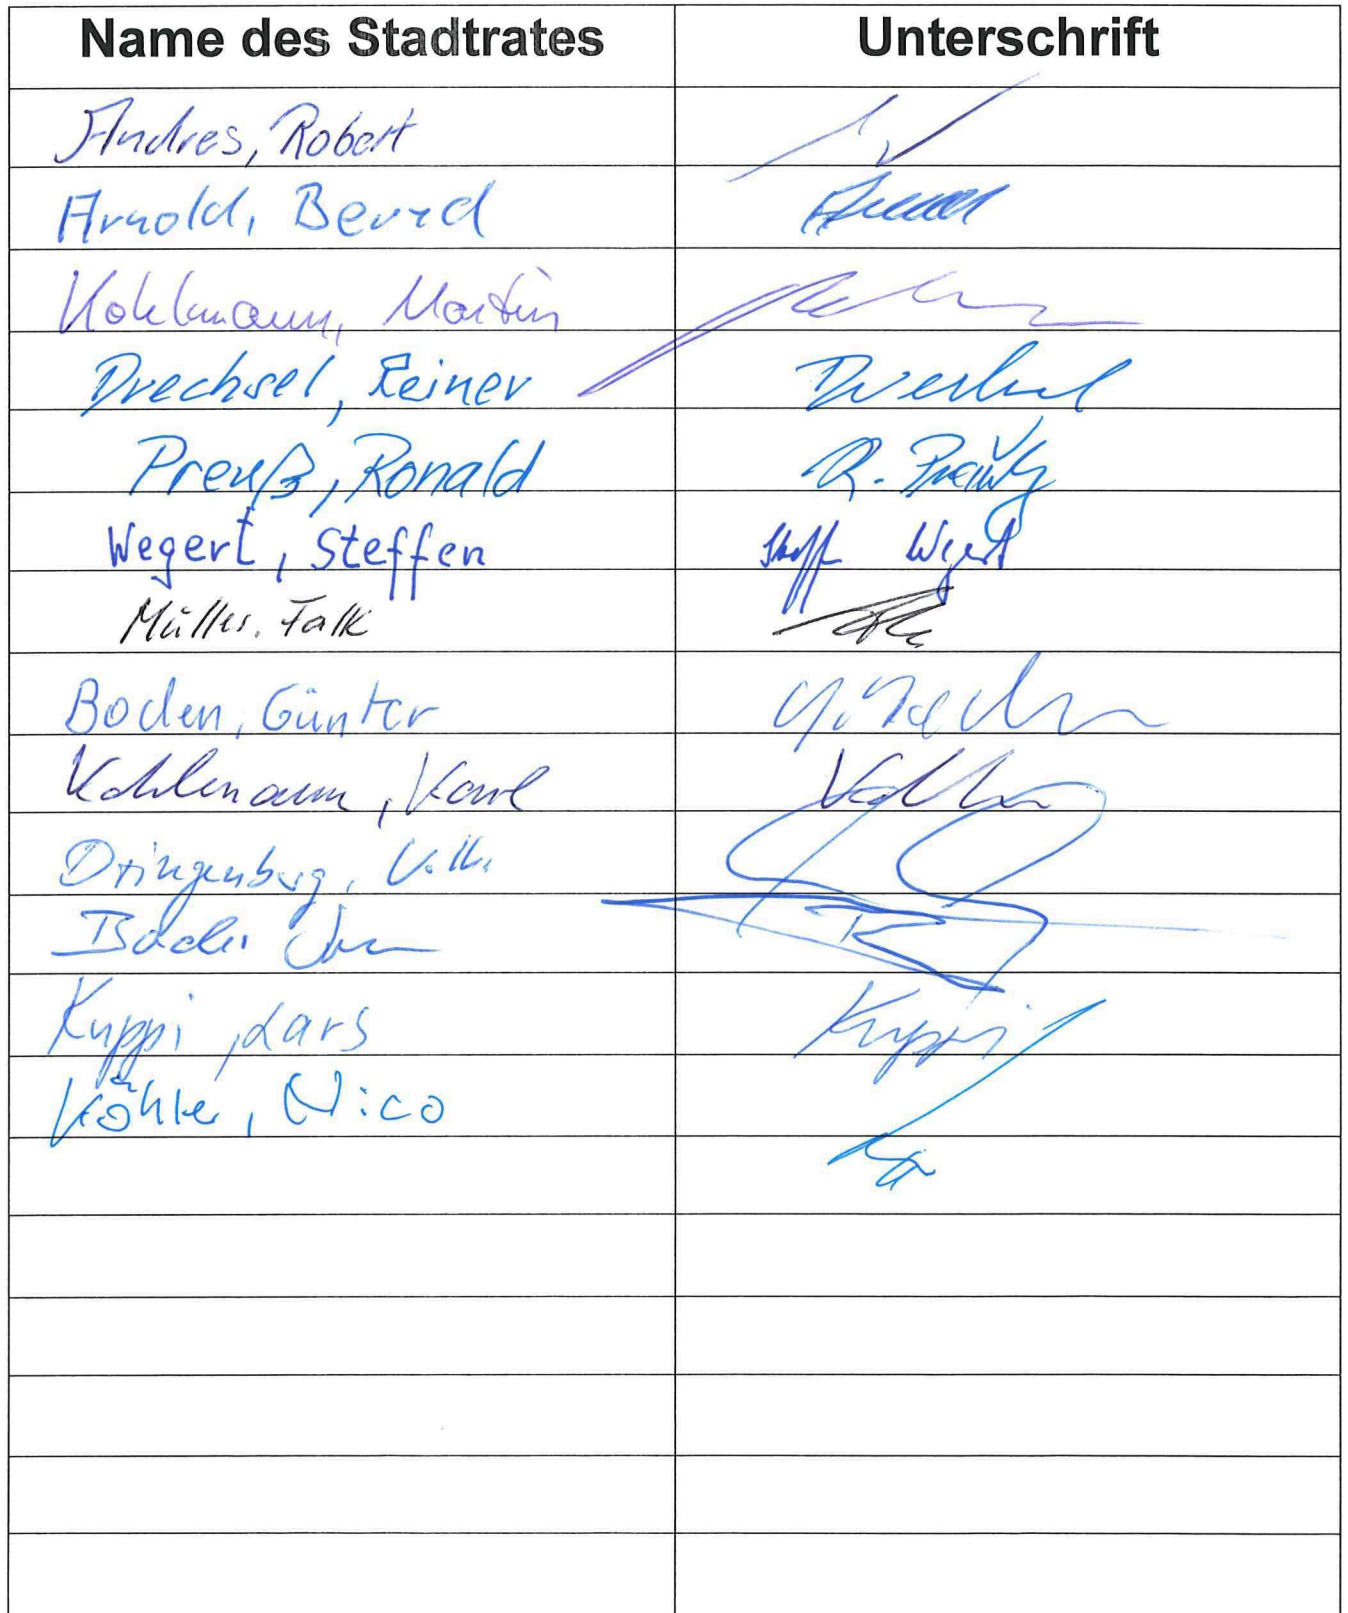 Name des Stadtrates Unterschrift
Andres, Robert
Arnold, Bernd
Kohlmann, Martin
Drechsel, Reiner Drechsel
Preuß, Ronald R. Preuß
Wegert, Steffen Steffen Wegert
Müller, Falk
Boden, Günter
Kohlmann, Karl
Dringenberg, Volk.
Kuppi, Lars Kuppi
Köhler, Nico